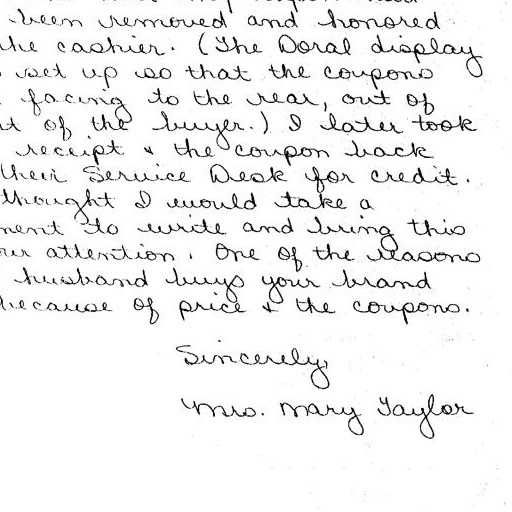 been removed and honored
the cashier. (The Doral display
set up so that the coupons
facing to the rear, out of
of the buyer.) I later took
receipt & the coupon back
their Service Desk for credit.
thought I would take a
ment to write and bring this
our attention. One of the reasons
husband buys your brand
because of price & the coupons.
Sincerely,
Mrs. Mary Taylor